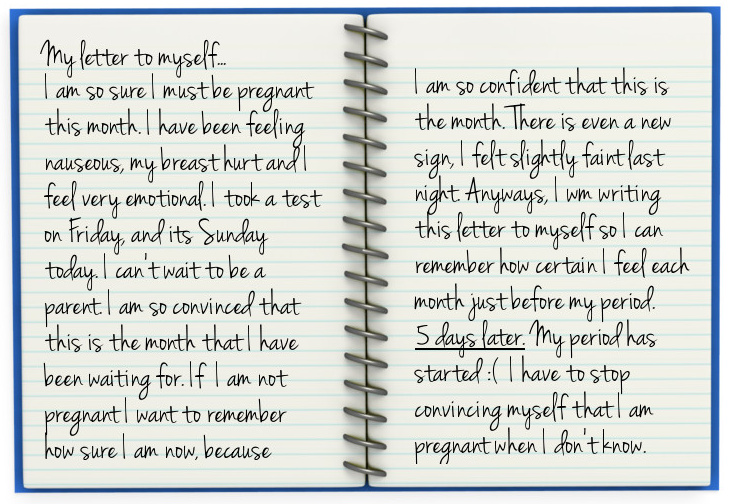 My letter to myself...
I am so sure I must be pregnant
this month. I have been feeling
nauseous, my breast hurt and I
feel very emotional. I took a test
on Friday, and its Sunday
today. I can't wait to be a
parent. I am so convinced that
this is the month that I have
been waiting for. If I am not
pregnant I want to remember
how sure I am now, because
I am so confident that this is
the month. There is even a new
sign, I felt slightly faint last
night. Anyways, I wm writing
this letter to myself so I can
remember how certain I feel each
month just before my period.
5 days later. My period has
started :( I have to stop
convincing myself that I am
pregnant when I don't know.